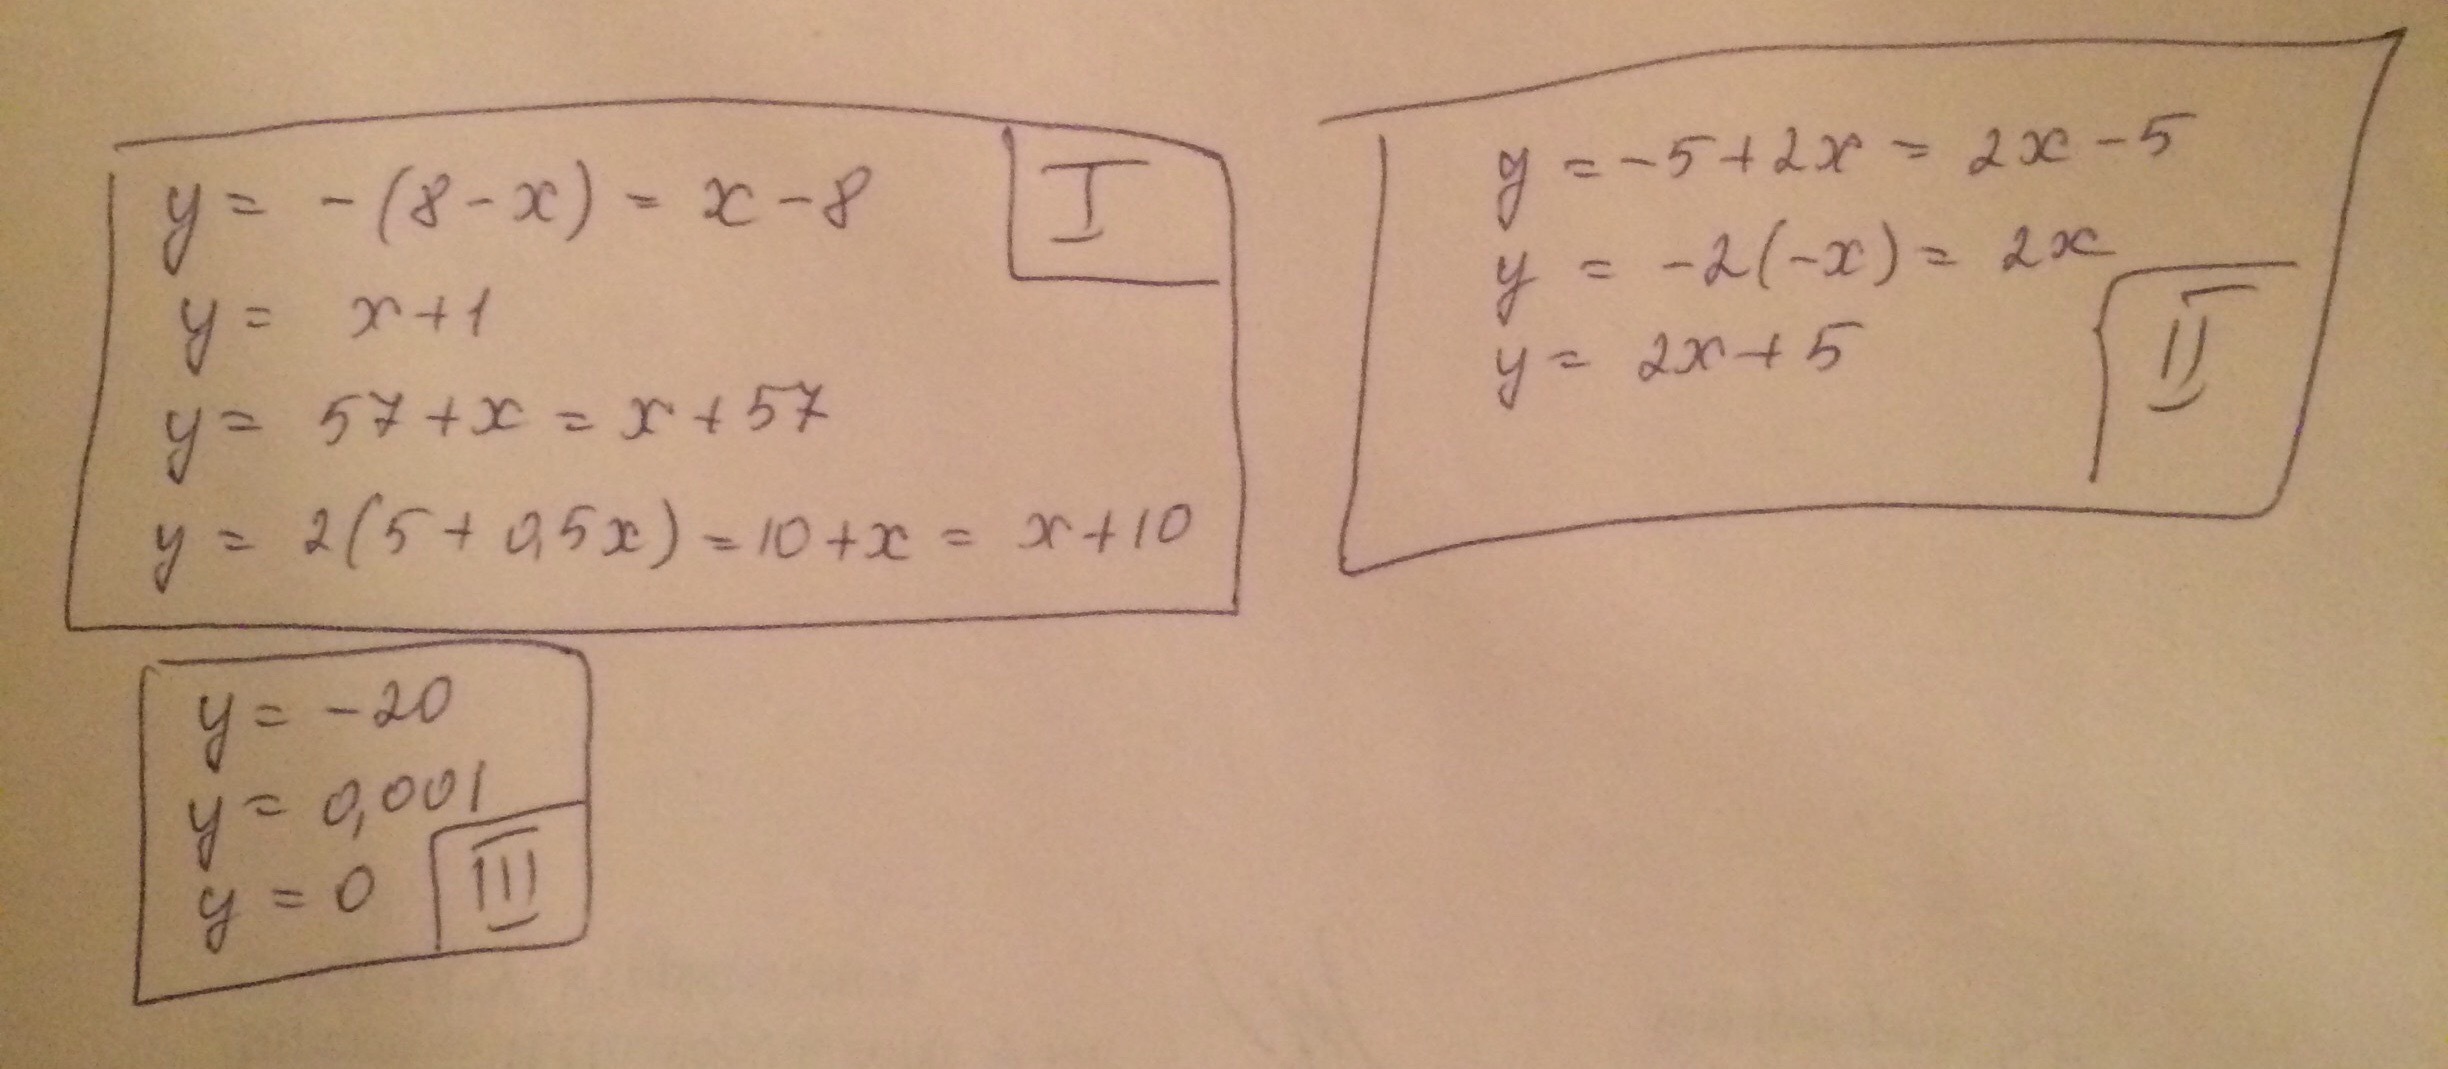 y = -(8-x) = x-8
I
y = x+1
y = 57+x = x+57
y = 2(5+0,5x) = 10+x = x+10
y = -5+2x = 2x-5
y = -2(-x) = 2x
y = 2x+5
II
y = -20
y = 0,001
y = 0
III